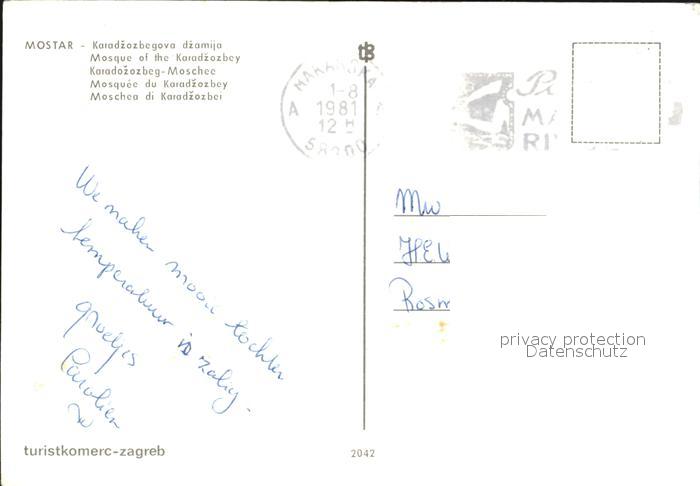 MOSTAR - Karadžozbegova džamija
Mosque of the Karadžozbey
Karadožozbeg-Moschee
Mosquée du Karadžozbey
Moschea di Karadžozbei
MAKARSKA
1-8
A 1981
12 H
We maken mooie tochten
temperatuur is zalig.
groetjes
Carolien
Mw
HEL
Rosm
privacy protection
Datenschutz
turistkomerc-zagreb
2042